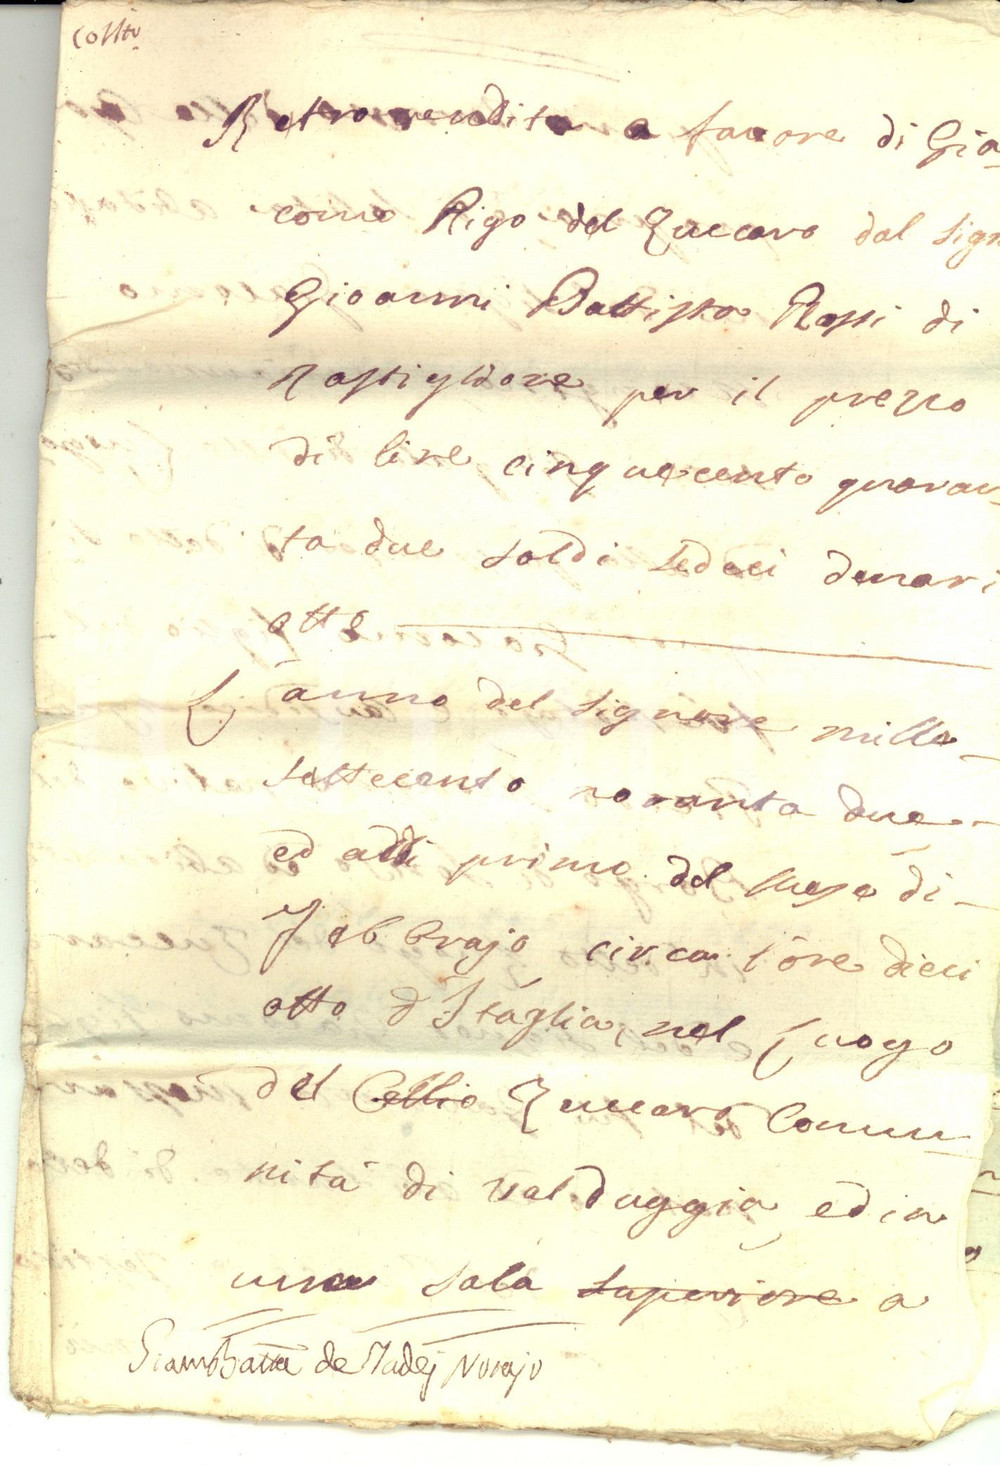 Retrovendita a favore di Gia-
como Rigo del Zuccaro dal Sign
Gioanni Battista Rossi di
Rastiglione per il prezzo
di lire cinquecento quaran-
ta due soldi sedeci denari
otto
L'anno del Signore mille-
settecento novanta due-
ed alli primo del mese di-
Febbrajo circa l'ore dieci
otto d'Itaglia, nel Luogo
del Cellio Zuccaro Comu-
nità di Valduggia, ed in
una sala superiore a
Giambatta de Tadej Norajo